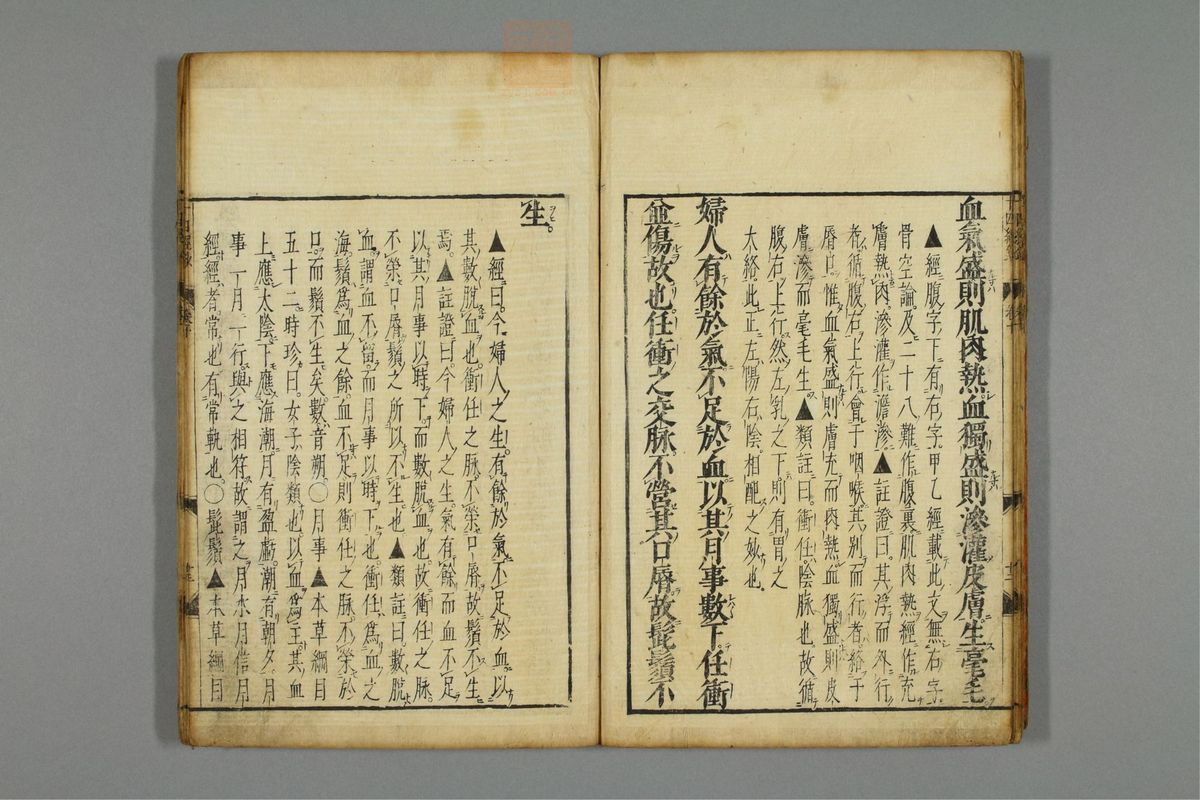 血氣盛則肌肉熱血獨盛則滲灌皮膚生毫毛
▲經腹字下有右字甲乙經載此文無右字
骨空論及二十八難作腹裏肌肉熱經作充
膚熱肉滲灌作澹滲▲註證曰其浮而外行
者循腹右上行會于咽喉其別而行者絡于
唇口惟血氣盛則膚充而肉熱血獨盛則皮
膚滲而毫毛生▲類註曰衝任陰脉也故循
腹右上行然左乳之下則有胃之
太絡此正左陽右陰相配之妙也
婦人有餘於氣不足於血以其月事數下任衝
並傷故也任衝之交脉不營其口唇故髭鬚不
生
▲經曰今婦人之生有餘於氣不足於血以
其數脫血也衝任之脉不榮口唇故鬚不生
焉▲註證曰今婦人之生氣有餘而血不足
以其月事以時下而數脫血也故衝任之脉
不榮口唇鬚之所以不生也▲類註曰數脫
血謂血不留而月事以時下也衝任爲血之
海鬚爲血之餘血不足則衝任之脉不榮於
口而鬚不生矣數音朔○月事▲本草綱目
五十二時珍曰女子陰類也以血爲主其血
上應太陰下應海潮月有盈虧潮有朝夕月
事一月一行與之相符故謂之月水月信月
經經者常也有常軌也○髭鬚▲本草綱目